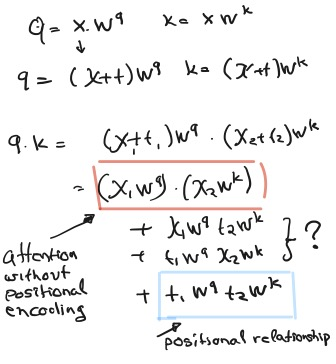 Q = x.w^q    k = x w^k
↓
q = (x+t)w^q    k = (x+t)w^k
q.k = (x₁+t₁)w^q . (x₂+t₂)w^k
= (x₁w^q) . (x₂w^k)
+ x₁w^q t₂w^k
+ t₁w^q x₂w^k } ?
+ t₁ w^q t₂w^k
attention
without
positional
encoding
positional relationship